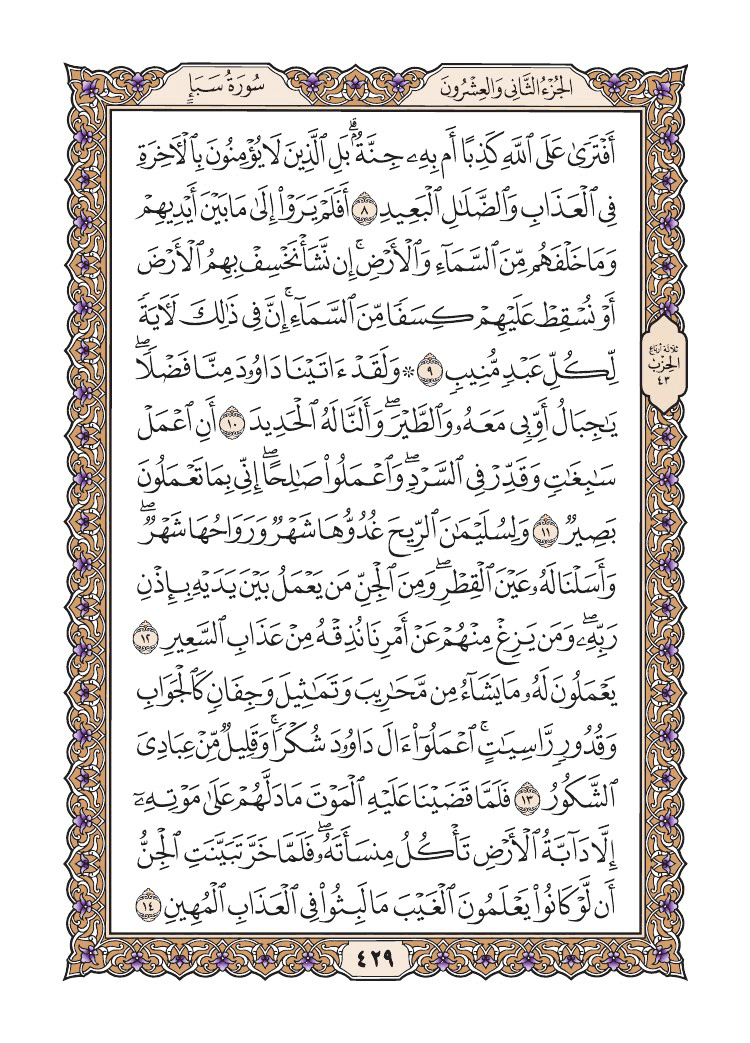 سُورَةُ سَبَإٍ
الجُزْءُ الثَّانِي وَالعِشْرُونَ
أَفْتَرَىٰ عَلَى ٱللَّهِ كَذِبًا أَم بِهِۦ جِنَّةُۢۗ بَلِ ٱلَّذِينَ لَا يُؤْمِنُونَ بِٱلْأٓخِرَةِ
فِي ٱلْعَذَابِ وَٱلضَّلَٰلِ ٱلْبَعِيدِ ٨ أَفَلَمْ يَرَوْا۟ إِلَىٰ مَا بَيْنَ أَيْدِيهِمْ
وَمَا خَلْفَهُم مِّنَ ٱلسَّمَآءِ وَٱلْأَرْضِۚ إِن نَّشَأْ نَخْسِفْ بِهِمُ ٱلْأَرْضَ
أَوْ نُسْقِطْ عَلَيْهِمْ كِسَفًا مِّنَ ٱلسَّمَآءِۚ إِنَّ فِي ذَٰلِكَ لَأٓيَةً
لِّكُلِّ عَبْدٍ مُّنِيبٍ ٩ ۞ وَلَقَدْ ءَاتَيْنَا دَاوُۥدَ مِنَّا فَضْلًاۖ
يَٰجِبَالُ أَوِّبِي مَعَهُۥ وَٱلطَّيْرَۖ وَأَلَنَّا لَهُ ٱلْحَدِيدَ ١٠ أَنِ ٱعْمَلْ
سَٰبِغَٰتٍ وَقَدِّرْ فِي ٱلسَّرْدِۖ وَٱعْمَلُوا۟ صَٰلِحًاۖ إِنِّي بِمَا تَعْمَلُونَ
بَصِيرٌ ١١ وَلِسُلَيْمَٰنَ ٱلرِّيحَ غُدُوُّهَا شَهْرٌ وَرَوَاحُهَا شَهْرٌۖ
وَأَسَلْنَا لَهُۥ عَيْنَ ٱلْقِطْرِۖ وَمِنَ ٱلْجِنِّ مَن يَعْمَلُ بَيْنَ يَدَيْهِ بِإِذْنِ
رَبِّهِۦۖ وَمَن يَزِغْ مِنْهُمْ عَنْ أَمْرِنَا نُذِقْهُ مِنْ عَذَابِ ٱلسَّعِيرِ ١٢
يَعْمَلُونَ لَهُۥ مَا يَشَآءُ مِن مَّحَٰرِيبَ وَتَمَٰثِيلَ وَجِفَانٍ كَٱلْجَوَابِ
وَقُدُورٍ رَّاسِيَٰتٍۚ ٱعْمَلُوٓا۟ ءَالَ دَاوُۥدَ شُكْرًاۚ وَقَلِيلٌ مِّنْ عِبَادِيَ
ٱلشَّكُورُ ١٣ فَلَمَّا قَضَيْنَا عَلَيْهِ ٱلْمَوْتَ مَا دَلَّهُمْ عَلَىٰ مَوْتِهِۦٓ
إِلَّا دَآبَّةُ ٱلْأَرْضِ تَأْكُلُ مِنسَأَتَهُۥۖ فَلَمَّا خَرَّ تَبَيَّنَتِ ٱلْجِنُّ
أَن لَّوْ كَانُوا۟ يَعْلَمُونَ ٱلْغَيْبَ مَا لَبِثُوا۟ فِي ٱلْعَذَابِ ٱلْمُهِينِ ١٤
ثلاثة أرباع
الحِزْب
٤٣
٤٢٩